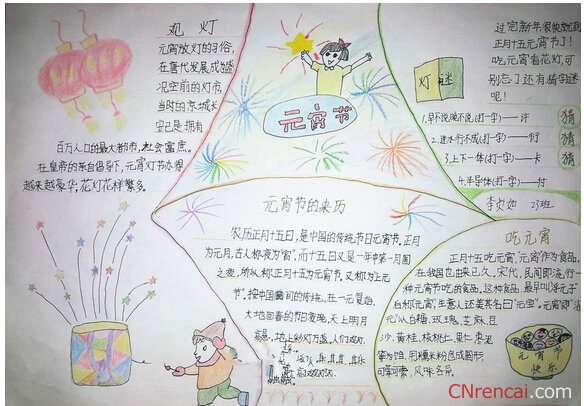 观 灯
元宵放灯的习俗,
在唐代发展成为盛
况空前的灯市,
当时的京城长
安已是拥有
百万人口的最大都市,社会富庶。
在皇帝的亲自倡导下,元宵灯节办得
越来越豪华,花灯花样繁多。
元宵节
过完新年很快就到
正月十五元宵节了!
吃元宵看花灯,可
别忘了还有猜字谜
呢!
灯 谜
1.早不说晚不说(打一字)——许
2.进水行不成(打一字)——衍
3.上下一体(打一字)——卡
4.半导体(打一字)——付
猜
猜
猜
23班
元宵节的来历
农历正月十五日,是中国的传统节日元宵节。正月
为元月,古人称夜为"宵",而十五日又是一年中第一个月圆
之夜,所以称正月十五为元宵节。又称为上元
节"。按中国民间的传统,在一元复始,
大地回春的节日夜晚,天上明月
高悬,地上彩灯万盏,人们观灯、
吃元宵
正月十五吃元宵,"元宵"作为食品,
在我国也由来已久。宋代,民间即流行一
种元宵节吃的食品。这种食品,最早叫"浮元子"
后称元宵,生意人还美其名曰"元宝"。元宵即"汤
元"以白糖、玫瑰、芝麻、豆
沙、黄桂、核桃仁、果仁、枣泥
等为馅,用糯米粉包成圆形,
可荤可素,风味各异。
元宵节
快乐
CNrencai.com